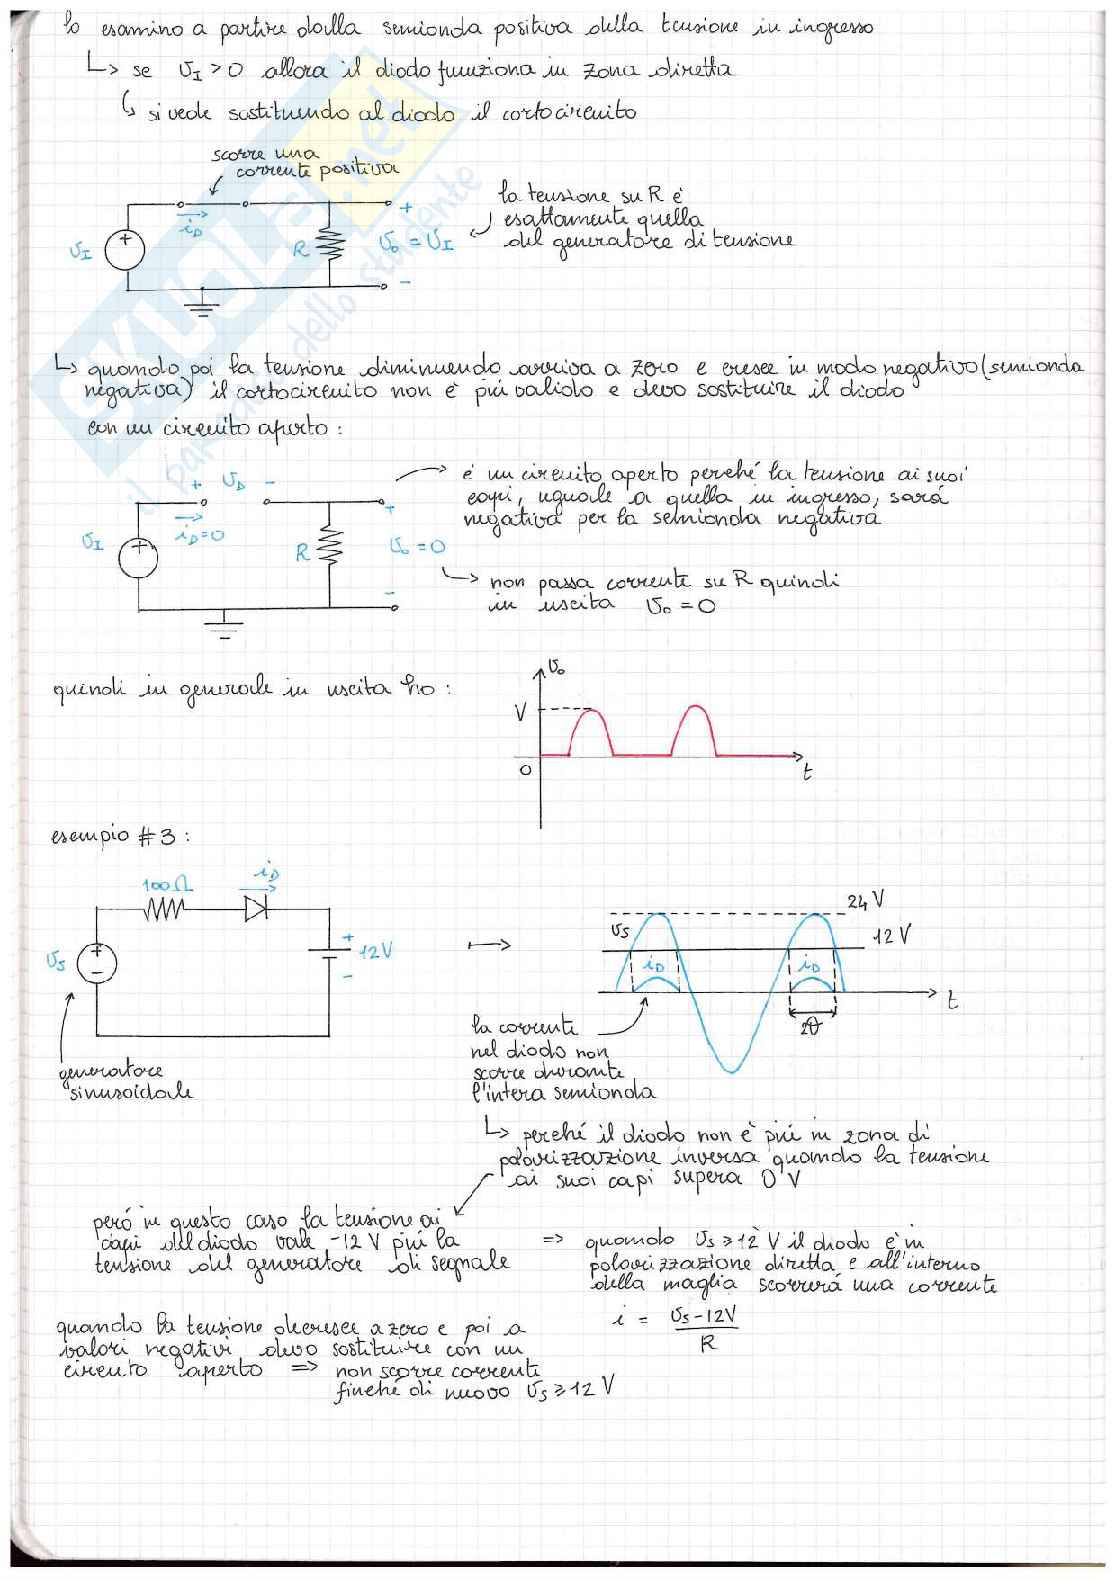 lo esamino a partire dalla semionda positiva della tensione in ingresso
↳ se υI > 0 allora il diodo funziona in zona diretta
↳ si vede sostituendo al diodo il cortocircuito
scorre una
corrente positiva
iD
υI
+
R
+
υo = υI
-
la tensione su R è
esattamente quella
del generatore di tensione
↳ quando poi la tensione diminuendo arriva a zero e cresce in modo negativo (semionda
negativa) il cortocircuito non è più valido e devo sostituire il diodo
con un circuito aperto :
+ υD -
iD=0
υI
+
R
+
υo = 0
-
è un circuito aperto perché la tensione ai suoi
capi, uguale a quella in ingresso, sarà
negativa per la semionda negativa
↳ non passa corrente su R quindi
in uscita υo = 0
quindi in generale in uscita ho :
υo
V
0
t
esempio #3 :
100Ω
iD
υS
+
-
+
12V
-
generatore
sinusoidale
24 V
υS
12 V
iD
iD
t
2θ
la corrente
nel diodo non
scorre durante
l'intera semionda
↳ perché il diodo non è più in zona di
polarizzazione inversa quando la tensione
ai suoi capi supera 0 V
però in questo caso la tensione ai
capi del diodo vale -12 V più la
tensione del generatore di segnale
⇒ quando υS ≥ 12 V il diodo è in
polarizzazione diretta e all'interno
della maglia scorrerà una corrente
i = υS - 12V
R
quando la tensione decresce a zero e poi a
valori negativi devo sostituire con un
circuito aperto ⇒ non scorre corrente
finché di nuovo υS ≥ 12 V
SKUOLA.net
il paradiso dello studente